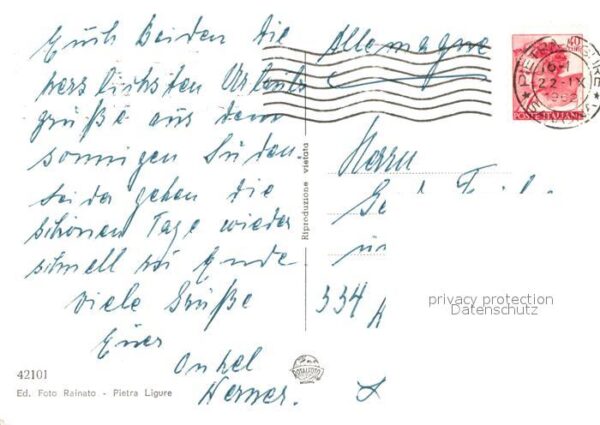 Euch Beiden die
herzlichsten Urlaubs
grüße aus dem
sonnigen Süden.
Leider gehen die
schönen Tage wieder
schnell zu Ende
Viele Grüße
Euer
Onkel
Werner.
42101
Ed. Foto Rainato - Pietra Ligure
Riproduzione vietata
Allemagne
PIETRA LIGURE
22 - IX
POSTE ITALIANE
Herrn
334
privacy protection
Datenschutz